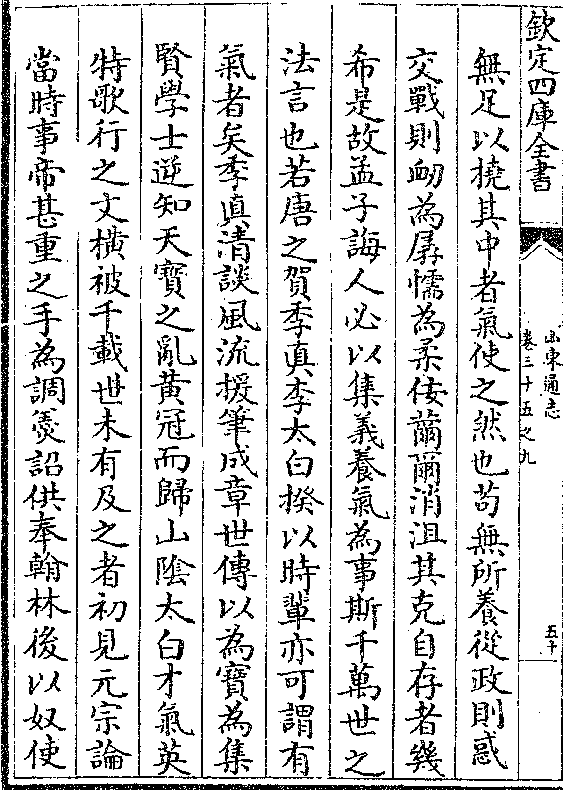 欽定四庫全書
山東通志
卷三十五之九
五十
無足以撓其中者氣使之然也苟無所養從政則惑
交戰則衂為孱懦為柔佞薾爾消沮其克自存者幾
希是故孟子誨人必以集義養氣為事斯千萬世之
法言也若唐之賀季真李太白揆以時輩亦可謂有
氣者矣季真清談風流援筆成章世傳以為寳為集
賢學士逆知天寳之亂黄冠而歸山陰太白才氣英
特歌行之文橫被千載世未有及之者初見元宗論
當時事帝甚重之手為調羮詔供奉翰林後以奴使